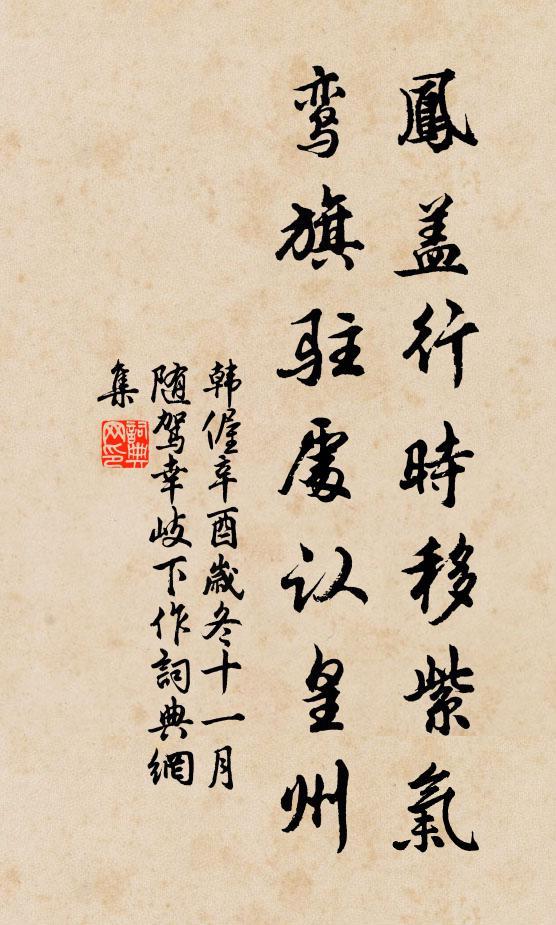 鳳盖行時移紫氣
鸾旗駐處认皇州
韩偓辛酉歲冬十一月
随駕幸岐下作詞典網
集
詞典
网印